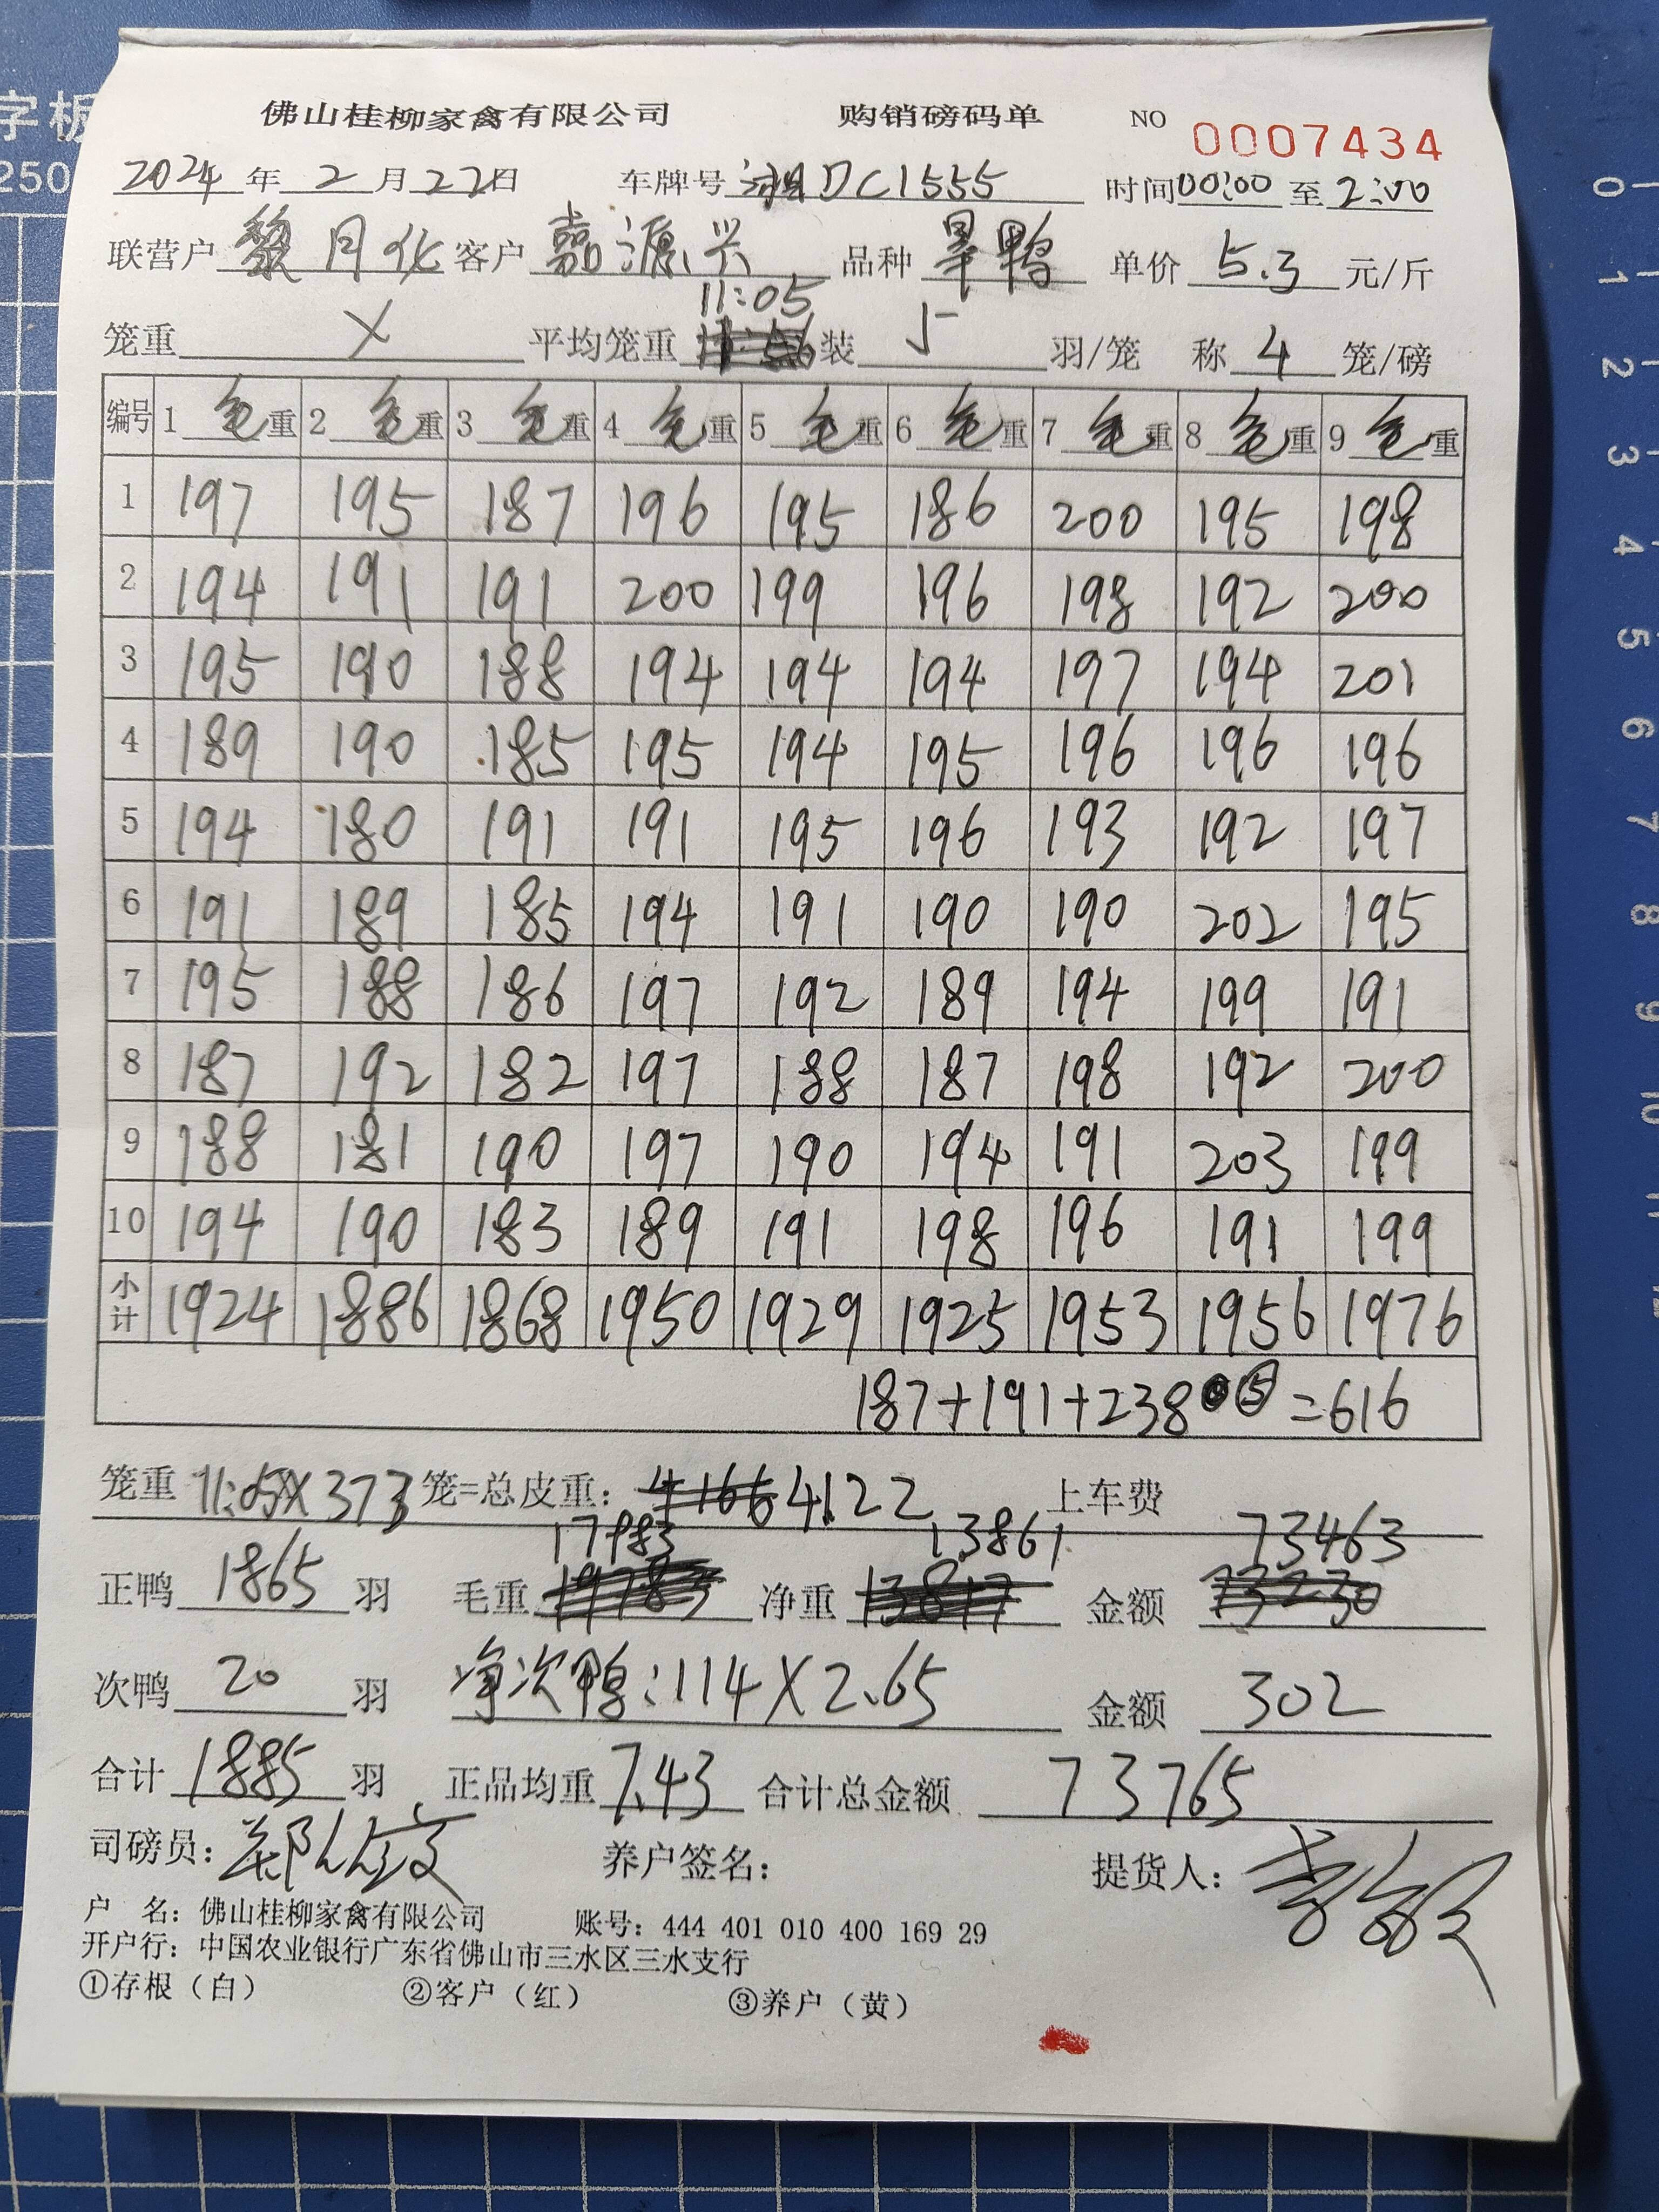 字板
250
佛山桂柳家禽有限公司 购销磅码单 NO 0007434
2024年2月22日 车牌号 湘DC1555 时间00:00至2:00
联营户 黎月化 客户 嘉源兴 品种 旱鸭 单价 5.3 元/斤
11:05
笼重 X 平均笼重 装 5 羽/笼 称 4 笼/磅
编号 1 毛重 2 毛重 3 毛重 4 毛重 5 毛重 6 毛重 7 毛重 8 毛重 9 毛重
1 197 195 187 196 195 186 200 195 198
2 194 191 191 200 199 196 198 192 200
3 195 190 188 194 194 194 197 194 201
4 189 190 185 195 194 195 196 196 196
5 194 180 191 191 195 196 193 192 197
6 191 189 185 194 191 190 190 202 195
7 195 188 186 197 192 189 194 199 191
8 187 192 182 197 188 187 198 192 200
9 188 181 190 197 190 194 191 203 199
10 194 190 183 189 191 198 196 191 199
小计 1924 1886 1868 1950 1929 1925 1953 1956 1976
187+191+238⑤=616
笼重 11:05X373 笼=总皮重: 4166 4122 上车费
17983 13861 73463
正鸭 1865 羽 毛重 净重 13817 金额 73230
次鸭 20 羽 净次鸭:114X2.65 金额 302
合计 1885 羽 正品均重 7.43 合计总金额 73765
司磅员: 养户签名: 提货人:
户 名: 佛山桂柳家禽有限公司 账号: 444 401 010 400 169 29
开户行: 中国农业银行广东省佛山市三水区三水支行
①存根(白) ②客户(红) ③养户(黄)
0
1
2
3
4
5
6
7
8
9
10
11
12